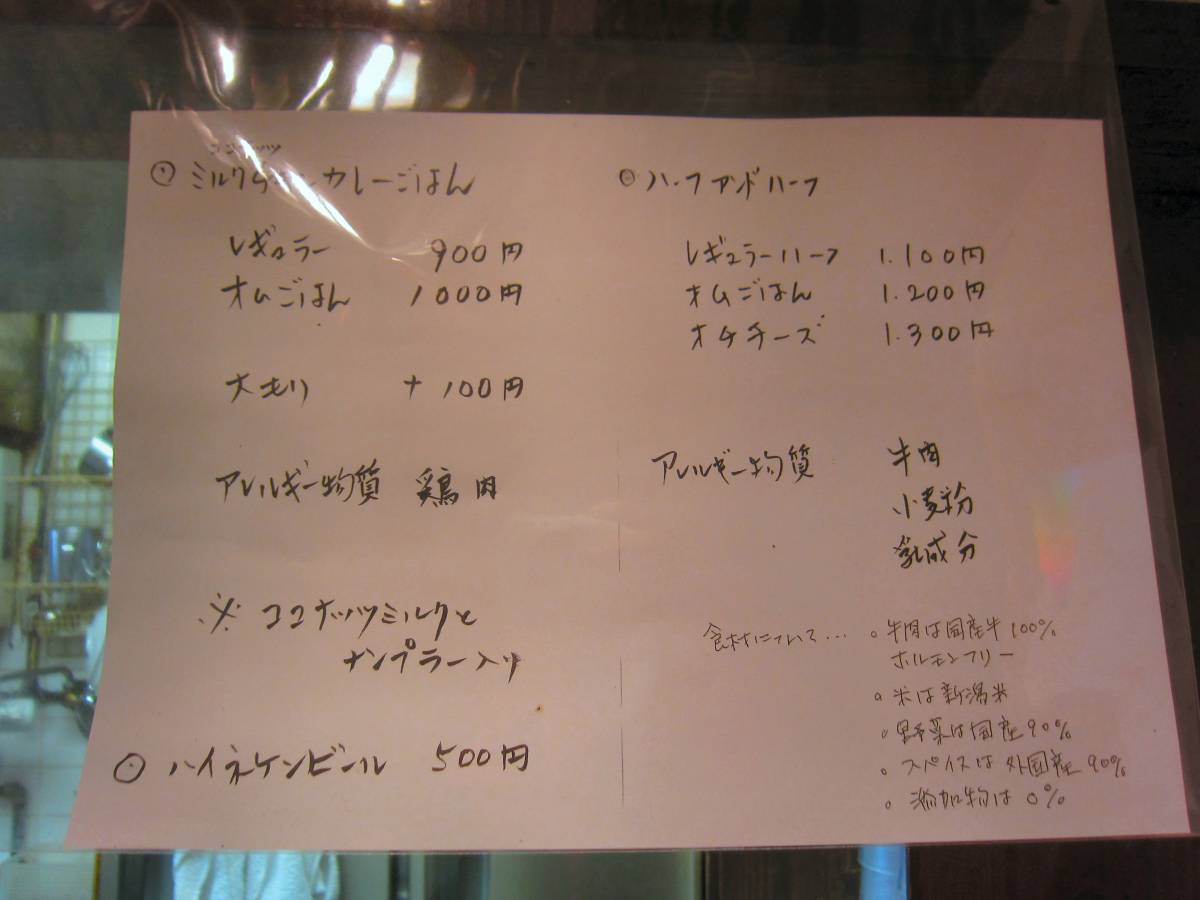 ココナッツ
◎ ミルクチキンカレーごはん
レギュラー 900円
オムごはん 1000円
大もり + 100円
アレルギー物質 鶏肉
※ ココナッツミルクと
ナンプラー入り
○ ハイネケンビール 500円
◎ ハーフアンドハーフ
レギュラーハーフ 1.100円
オムごはん 1.200円
オムチーズ 1.300円
アレルギー物質 牛肉
小麦粉
乳成分
食材について... 。牛肉は国産牛100%
ホルモンフリー
。米は新潟米
。野菜は国産90%
。スパイスは外国産90%
。添加物は0%